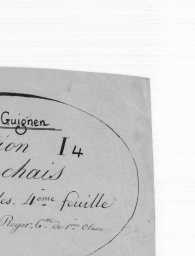 Guignen
ion I4
chais
les. 4ème feuille
Royer, G.tre de 1ère Classe